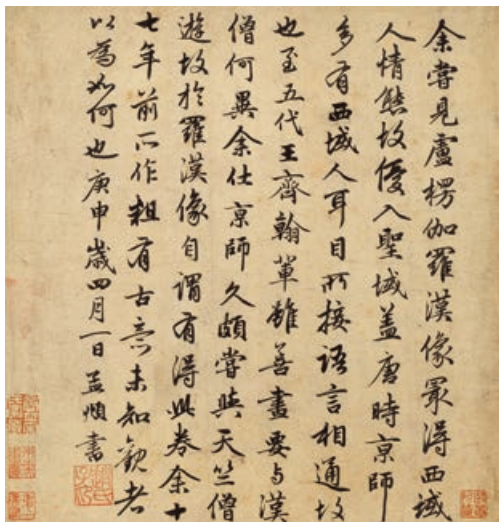 余嘗見盧楞伽羅漢像冣得西域
人情態故優入聖域盖唐時京師
多有西域人耳目所接語言相通故
也至五代王齊翰輩雖善畫要与漢
僧何異余仕京師久頗嘗與天竺僧
遊故於羅漢像自謂有得此卷余十
七年前所作粗有古意未知觀者
以為如何也庚申歲四月一日孟頫書